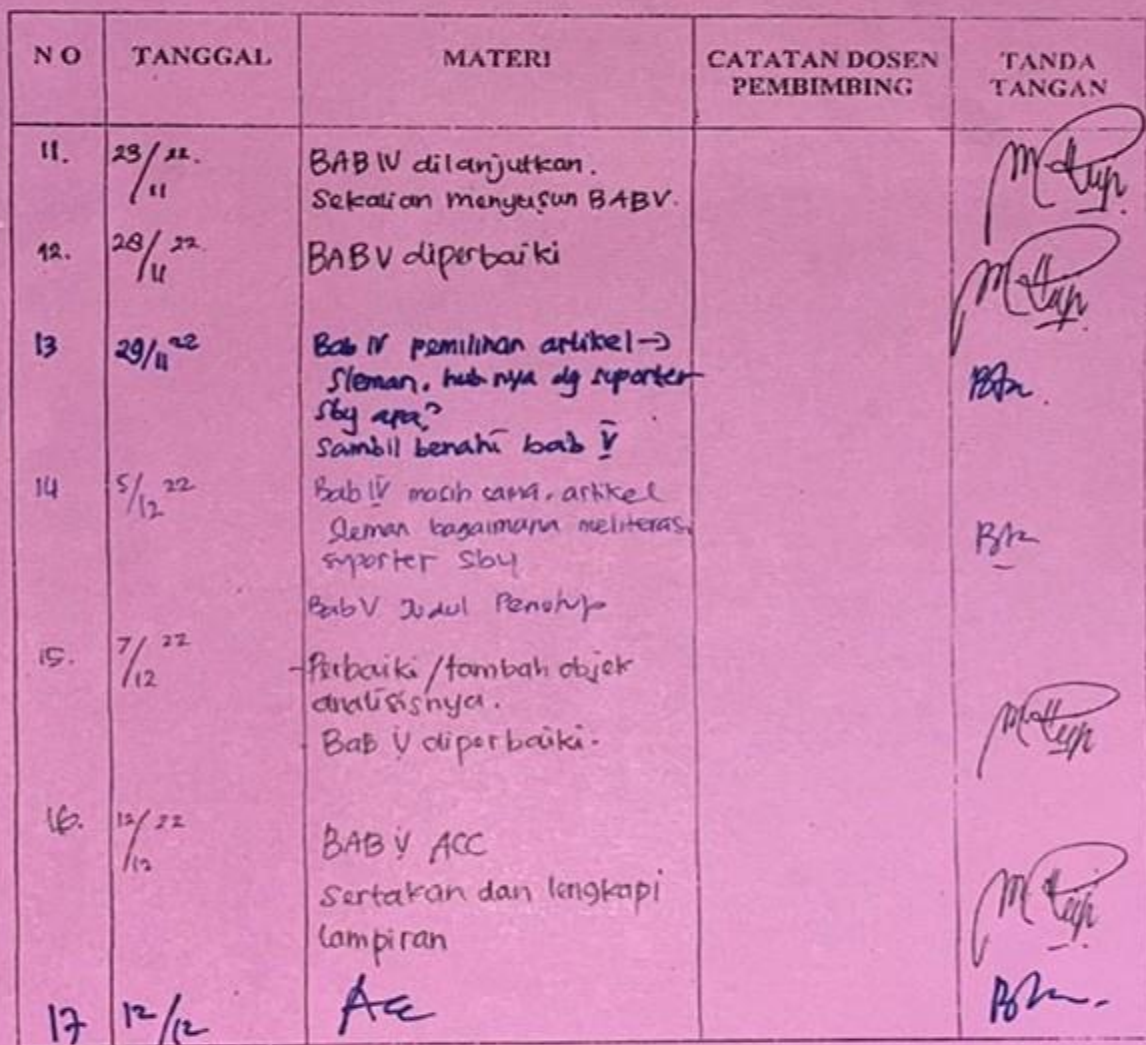 NO TANGGAL MATERI CATATAN DOSEN PEMBIMBING TANDA TANGAN
11. 23/11 22. BAB IV dilanjutkan.
Sekalian menyusun BAB V.
12. 28/11 22. BAB V diperbaiki
13 29/11 22 Bab IV pemilihan artikel →
Sleman, hub nya dg suporter
Sby apa?
Sambil benahi bab V
14 5/12 22 Bab IV masih sama, artikel
Sleman bagaimana meliterasi
suporter Sby
Bab V Judul Penutup
15. 7/12 22 - Perbaiki / tambah objek
analisisnya.
- Bab V diperbaiki.
16. 12/12 22 BAB V ACC
Sertakan dan lengkapi
lampiran
17 12/12 Acc